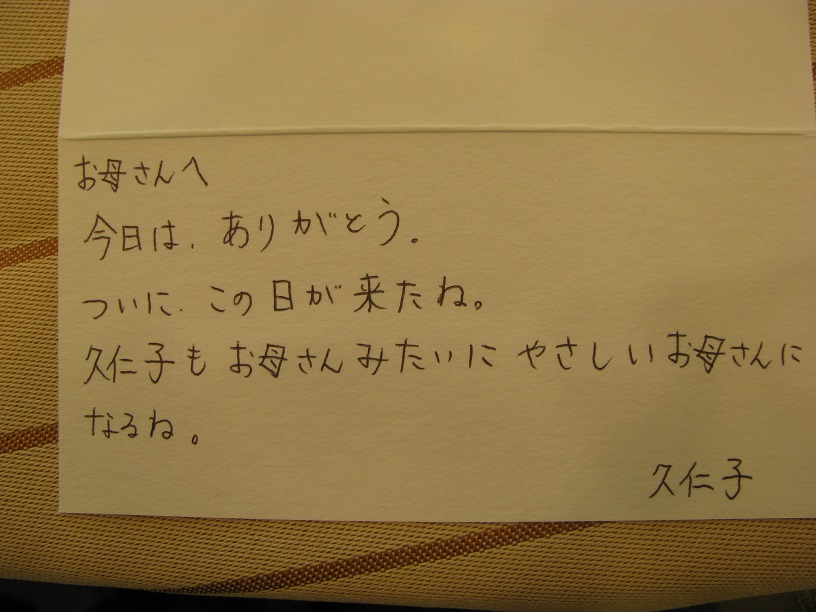 お母さんへ
今日は、ありがとう。
ついに、この日が来たね。
久仁子もお母さんみたいにやさしいお母さんに
なるね。
久仁子